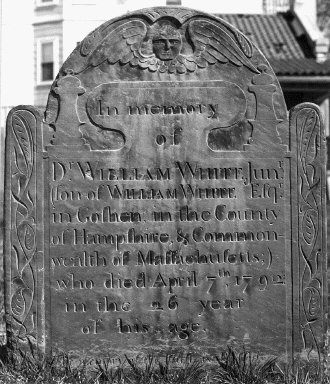 In memory
of
Dr. WILLIAM WHITE, Junr
(son of WILLIAM WHITE Esqr
in Goshen, in the County
of Hampshire, & Common-
wealth of Massachusetts;)
who died April 7th, 1792
in the 26 year
of his age.